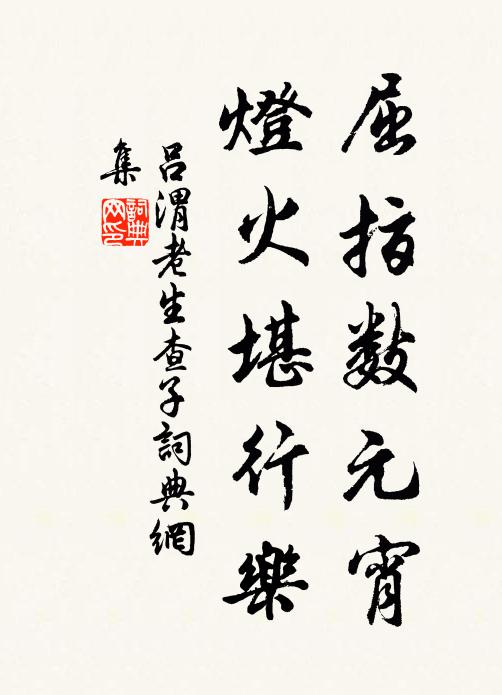 屈指数元宵
燈火堪行樂
吕渭老生查子詞典網
集
詞典
网印